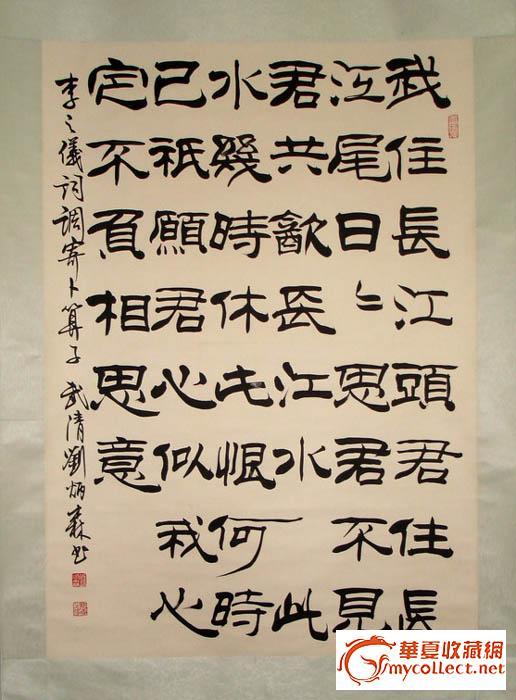 我住長江頭君住長
江尾日〻思君不見
君共㱃長江水此
水幾時休此恨何時
已祇願君心似我心
定不負相思意
李之儀詞調寄卜算子 武清劉炳森書
華夏收藏網
mycollect.net